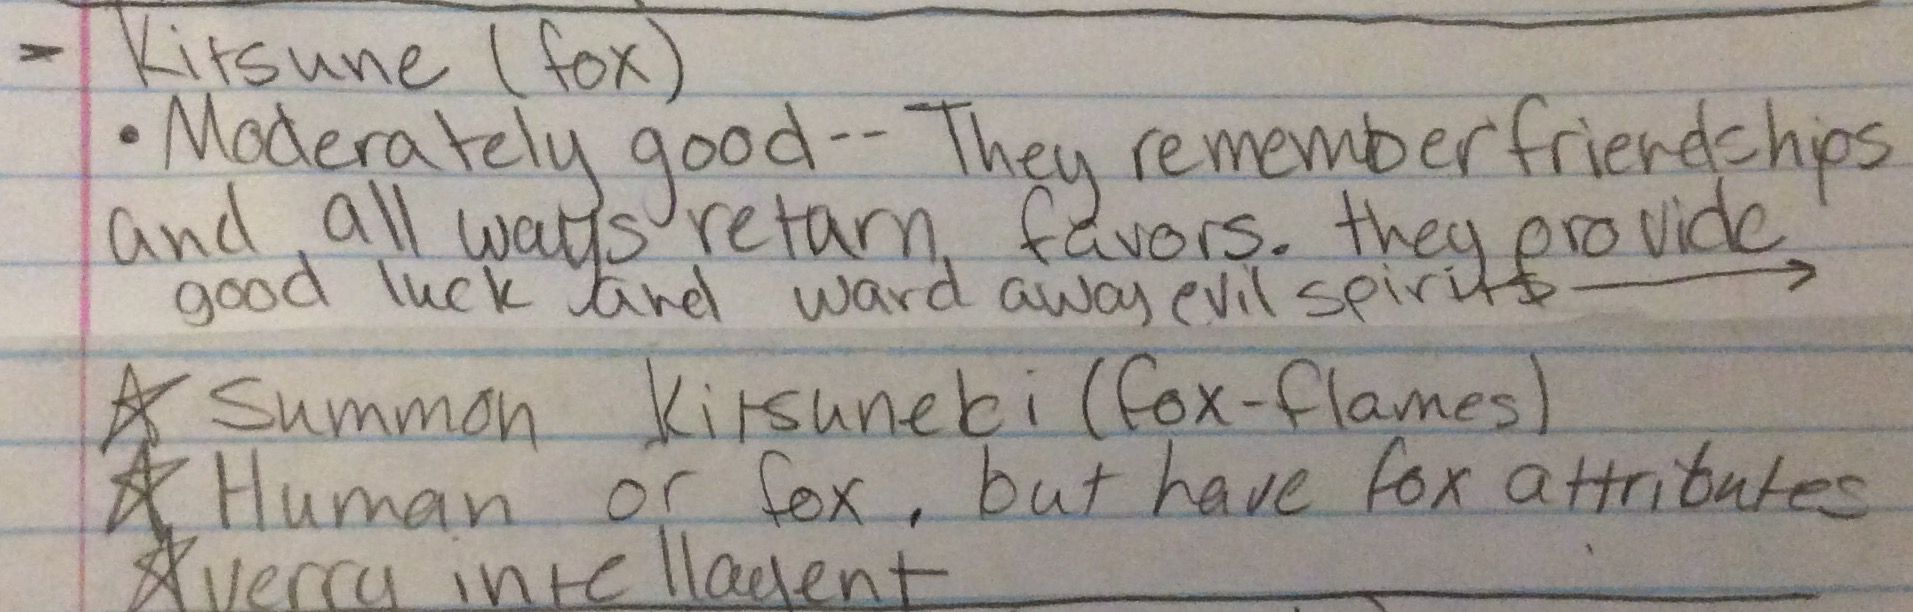 - Kitsune (fox)
• Moderately good -- They remember friendships
and all ways return favors. they provide
good luck and ward away evil spirits →
☆ Summon Kitsunebi (fox-flames)
☆ Human or fox, but have fox attributes
☆ verry intellagent